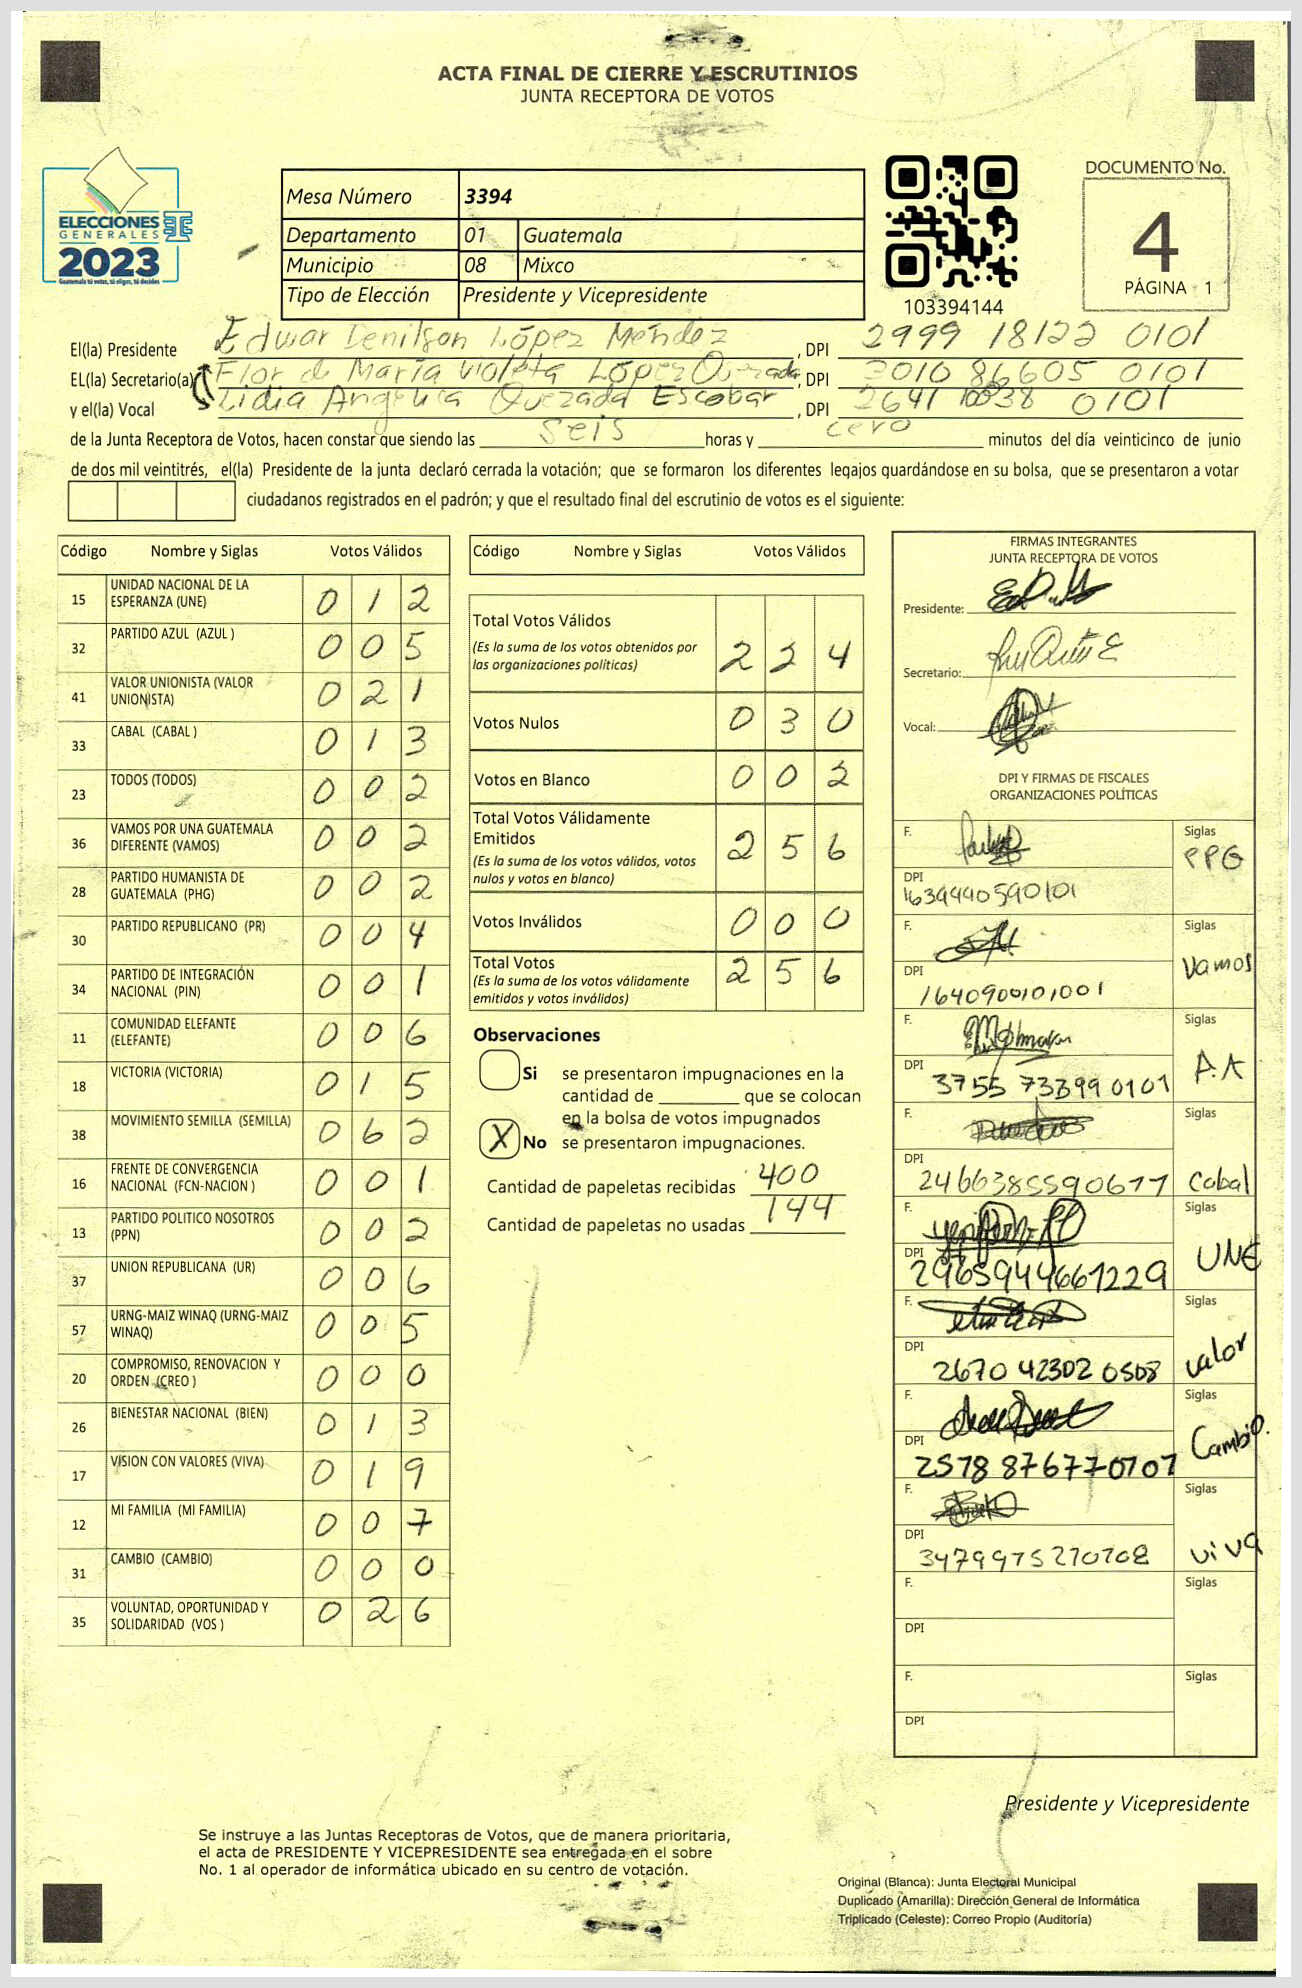 ACTA FINAL DE CIERRE Y ESCRUTINIOS
JUNTA RECEPTORA DE VOTOS
ELECCIONES
GENERALES
2023
Guatemala tú votas, tú eliges, tú decides
Mesa Número 3394
Departamento 01 Guatemala
Municipio 08 Mixco
Tipo de Elección Presidente y Vicepresidente
103394144
DOCUMENTO No.
4
PÁGINA 1
El(la) Presidente Edwar Denilson López Méndez, DPI 2999 18122 0101
EL(la) Secretario(a) Flor de María Violeta López Quezada, DPI 3010 86605 0101
y el(la) Vocal Lidia Angélica Quezada Escobar, DPI 2641 0101
de la Junta Receptora de Votos, hacen constar que siendo las seis horas y cero minutos del día veinticinco de junio
de dos mil veintitrés, el(la) Presidente de la junta declaró cerrada la votación; que se formaron los diferentes legajos guardándose en su bolsa, que se presentaron a votar
ciudadanos registrados en el padrón; y que el resultado final del escrutinio de votos es el siguiente:
Código Nombre y Siglas Votos Válidos
15 UNIDAD NACIONAL DE LA ESPERANZA (UNE) 0 1 2
32 PARTIDO AZUL (AZUL ) 0 0 5
41 VALOR UNIONISTA (VALOR UNIONISTA) 0 2 1
33 CABAL (CABAL ) 0 1 3
23 TODOS (TODOS) 0 0 2
36 VAMOS POR UNA GUATEMALA DIFERENTE (VAMOS) 0 0 2
28 PARTIDO HUMANISTA DE GUATEMALA (PHG) 0 0 2
30 PARTIDO REPUBLICANO (PR) 0 0 4
34 PARTIDO DE INTEGRACIÓN NACIONAL (PIN) 0 0 1
11 COMUNIDAD ELEFANTE (ELEFANTE) 0 0 6
18 VICTORIA (VICTORIA) 0 1 5
38 MOVIMIENTO SEMILLA (SEMILLA) 0 6 2
16 FRENTE DE CONVERGENCIA NACIONAL (FCN-NACION ) 0 0 1
13 PARTIDO POLITICO NOSOTROS (PPN) 0 0 2
37 UNION REPUBLICANA (UR) 0 0 6
57 URNG-MAIZ WINAQ (URNG-MAIZ WINAQ) 0 0 5
20 COMPROMISO, RENOVACION Y ORDEN (CREO ) 0 0 0
26 BIENESTAR NACIONAL (BIEN) 0 1 3
17 VISION CON VALORES (VIVA) 0 1 9
12 MI FAMILIA (MI FAMILIA) 0 0 7
31 CAMBIO (CAMBIO) 0 0 0
35 VOLUNTAD, OPORTUNIDAD Y SOLIDARIDAD (VOS ) 0 2 6
Código Nombre y Siglas Votos Válidos
Total Votos Válidos 2 2 4
(Es la suma de los votos obtenidos por
las organizaciones políticas)
Votos Nulos 0 3 0
Votos en Blanco 0 0 2
Total Votos Válidamente
Emitidos 2 5 6
(Es la suma de los votos válidos, votos
nulos y votos en blanco)
Votos Inválidos 0 0 0
Total Votos 2 5 6
(Es la suma de los votos válidamente
emitidos y votos inválidos)
Observaciones
Si se presentaron impugnaciones en la
cantidad de ________ que se colocan
en la bolsa de votos impugnados
X No se presentaron impugnaciones.
Cantidad de papeletas recibidas 400
Cantidad de papeletas no usadas 144
FIRMAS INTEGRANTES
JUNTA RECEPTORA DE VOTOS
Presidente:
Secretario:
Vocal:
DPI Y FIRMAS DE FISCALES
ORGANIZACIONES POLÍTICAS
F. Siglas PPG
DPI 1639440590101
F. Siglas Vamos
DPI 1640900101001
F. Siglas P.A
DPI 3755 73399 0101
F. Siglas Cabal
DPI 2466385590611
F. Siglas UNE
DPI 2965944661229
F. Siglas valor
DPI 2670 42302 0508
F. Siglas Cambio.
DPI 2578 87677 0707
F. Siglas viva
DPI 3479975270708
F. Siglas
DPI
F. Siglas
DPI
Presidente y Vicepresidente
Se instruye a las Juntas Receptoras de Votos, que de manera prioritaria,
el acta de PRESIDENTE Y VICEPRESIDENTE sea entregada en el sobre
No. 1 al operador de informática ubicado en su centro de votación.
Original (Blanca): Junta Electoral Municipal
Duplicado (Amarilla): Dirección General de Informática
Triplicado (Celeste): Correo Propio (Auditoría)